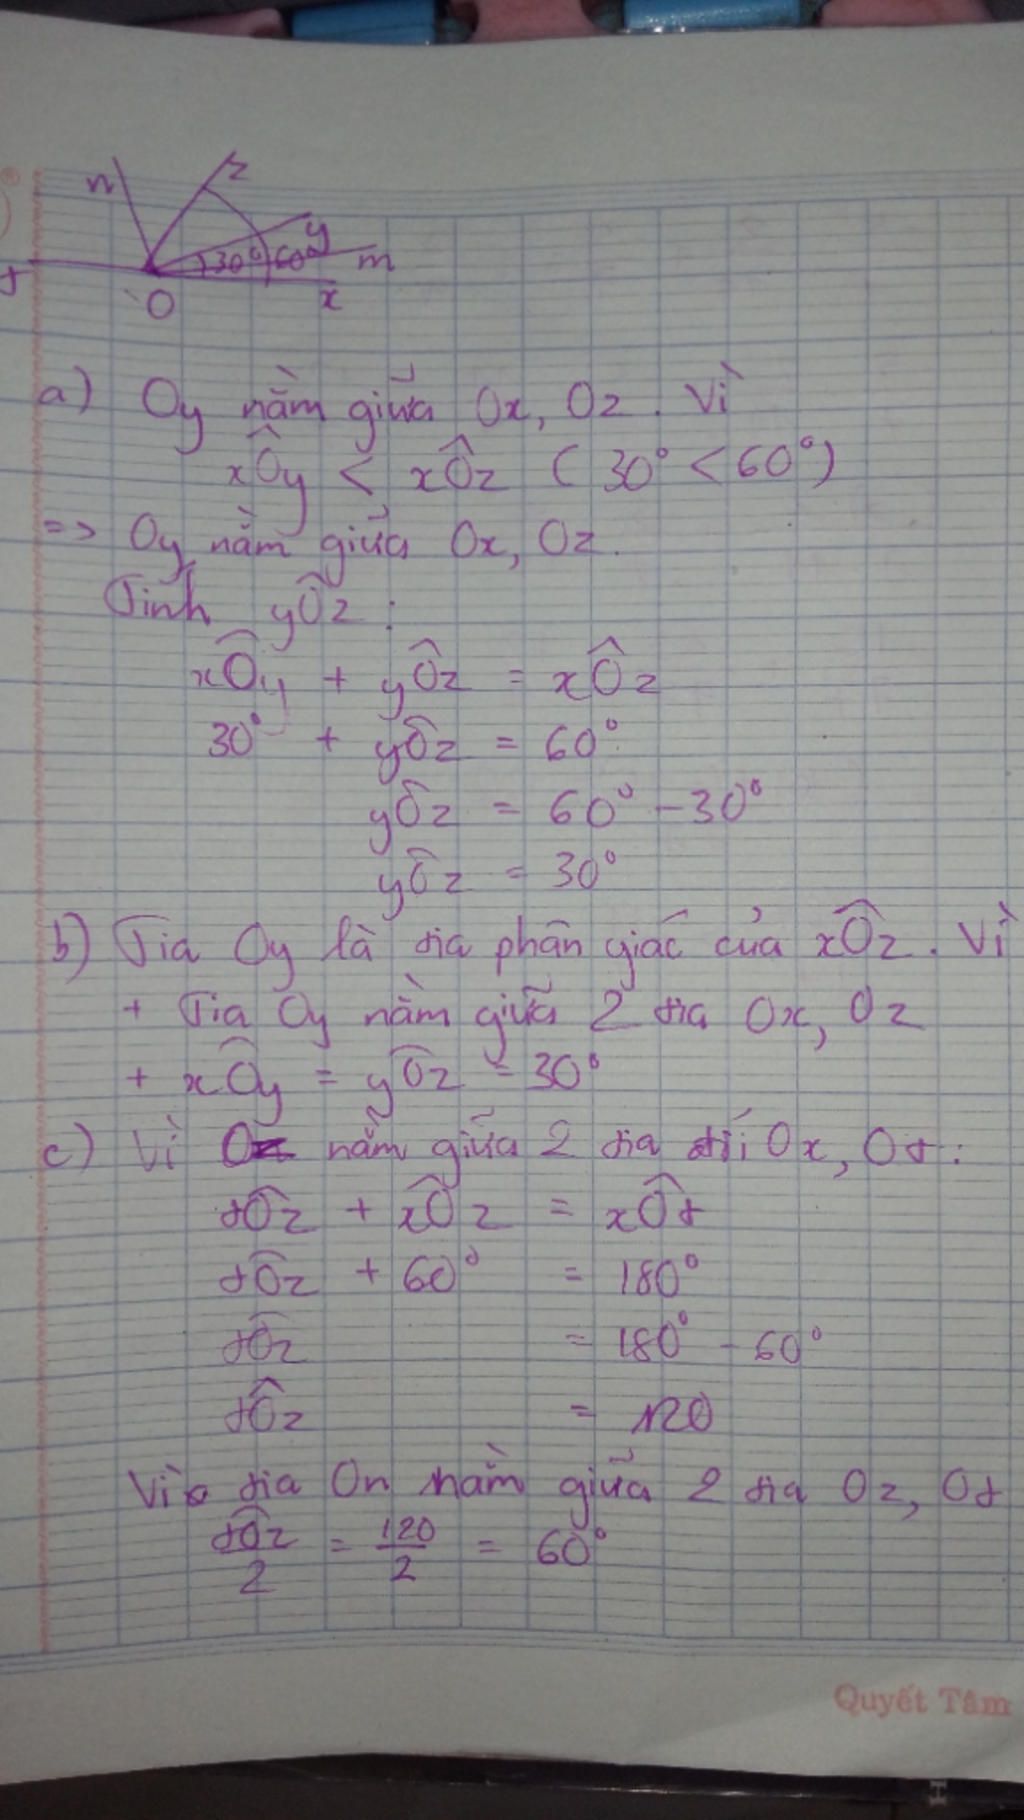 n
z
y
30° 60°
m
t
O
x
a) Oy nằm giữa Ox, Oz. Vì
xÔy < xÔz ( 30° < 60° )
=> Oy nằm giữa Ox, Oz.
Tính yÔz :
xÔy + yÔz = xÔz
30° + yÔz = 60°
yÔz = 60° - 30°
yÔz = 30°
b) Tia Oy là tia phân giác của xÔz. Vì
+ Tia Oy nằm giữa 2 tia Ox, Oz
+ xÔy = yÔz = 30°
c) Vì Oz nằm giữa 2 tia Ox, Ot :
tÔz + xÔz = xÔt
tÔz + 60° = 180°
tÔz = 180° - 60°
tÔz = 120
Vì tia On nằm giữa 2 tia Oz, Ot
tÔz/2 = 120/2 = 60°
Quyết Tâm